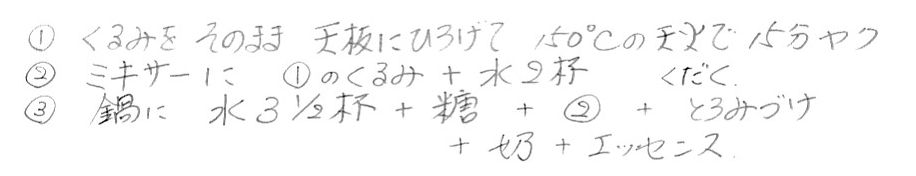 ① くるみを そのまま 天板にひろげて 150℃の天火で 15分ヤク
② ミキサーに ①のくるみ + 水2杯 くだく
③ 鍋に 水3 1/2杯 + 糖 + ② + とろみづけ
+ 奶 + エッセンス.